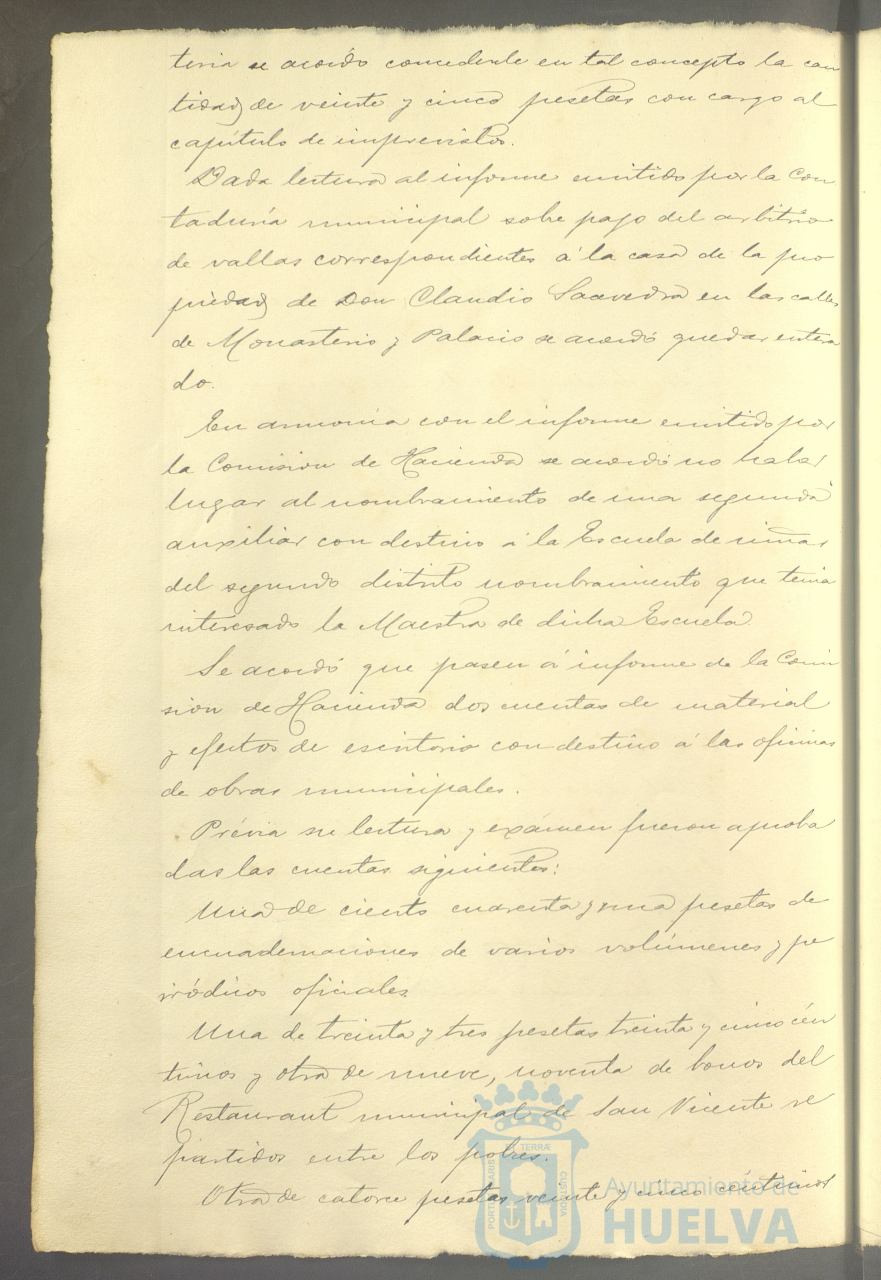 teria se acordó concederle en tal concepto la can
tidad de veinte y cinco pesetas con cargo al
capítulo de imprevistos.
Dada lectura al informe emitido por la Con
taduría municipal sobre pago del arbitrio
de vallas correspondientes á la casa de la pro
piedad de Don Claudio Saavedra en las calles
de Monasterio y Palacio se acordó quedar entera
do.
En armonia con el informe emitido por
la Comision de Hacienda se acordó no haber
lugar al nombramiento de una segunda
auxiliar con destino á la Escuela de niñas
del segundo distrito nombramiento que tenia
interesado la Maestra de dicha Escuela.
Se acordó que pasen á informe de la Comi
sion de Hacienda dos cuentas de material
y efectos de escritorio con destino á las oficinas
de obras municipales.
Prévia su lectura y exámen fueron aproba
das las cuentas siguientes:
Una de ciento cuarenta y una pesetas de
encuadernaciones de varios volúmenes y pe
riódicos oficiales
Una de treinta y tres pesetas treinta y cinco cén
timos y otra de nueve, noventa de bonos del
Restaurant municipal de San Vicente re
partidos entre los pobres.
Otra de catorce pesetas veinte y cinco céntimos
Ayuntamiento de
HUELVA
PORTUS MARIS ET TERRÆ CUSTODIA